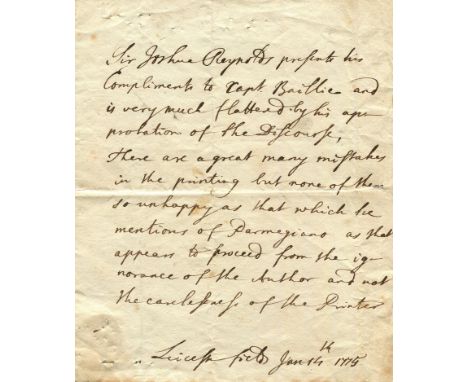 Sir Joshua Reynolds presents his
Compliments to Capt Baillie and
is very much flattered by his ap-
probation of the Discourse,
There are a great many mistakes
in the printing but none of them
so unhappy as that which he
mentions of Parmegiano as that
appears to proceed from the ig-
norance of the Author and not
the carelesness of the Printer
Leicester fields Jan 14th 1775